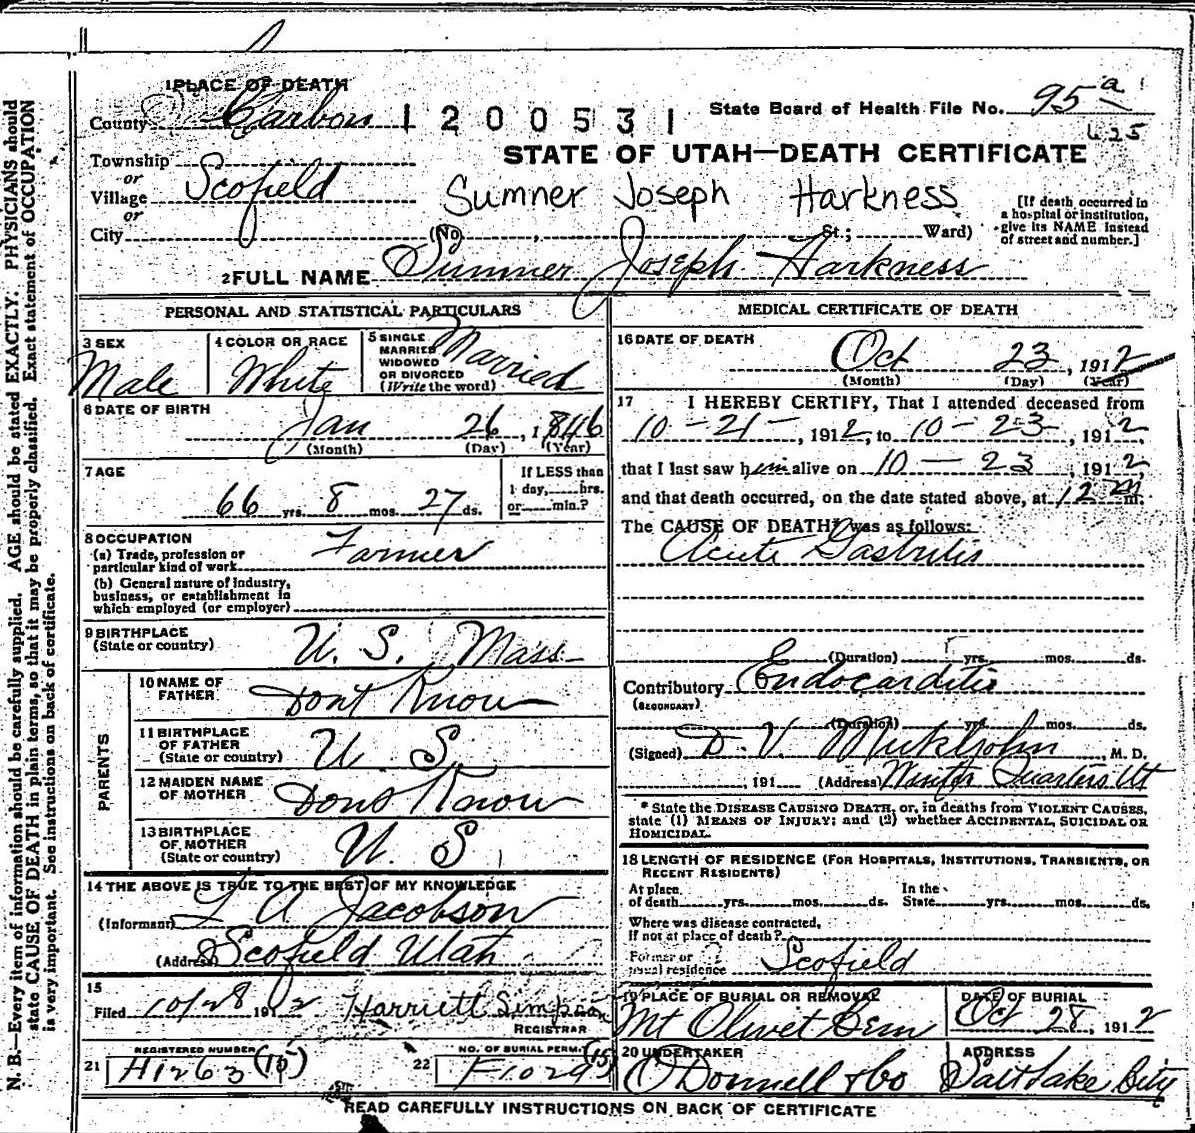 1 PLACE OF DEATH
County Carbon 1200531 State Board of Health File No. 95 a
625
STATE OF UTAH—DEATH CERTIFICATE
Township
or
Village Scofield Sumner Joseph Harkness
or
City (No. , St.; Ward)
[If death occurred in
a hospital or institution,
give its NAME instead
of street and number.]
2 FULL NAME Sumner Joseph Harkness
PERSONAL AND STATISTICAL PARTICULARS
3 SEX
Male
4 COLOR OR RACE
White
5 SINGLE
MARRIED
WIDOWED
OR DIVORCED
(Write the word)
Married
6 DATE OF BIRTH
Jan 26, 1846
(Month) (Day) (Year)
7 AGE
66 yrs. 8 mos. 27 ds.
If LESS than
1 day, hrs.
or min.?
8 OCCUPATION
(a) Trade, profession or
particular kind of work Farmer
(b) General nature of industry,
business, or establishment in
which employed (or employer)
9 BIRTHPLACE
(State or country) U. S. Mass
PARENTS
10 NAME OF
FATHER Dont Know
11 BIRTHPLACE
OF FATHER
(State or country) U S
12 MAIDEN NAME
OF MOTHER Dont Know
13 BIRTHPLACE
OF MOTHER
(State or country) U. S
14 THE ABOVE IS TRUE TO THE BEST OF MY KNOWLEDGE
(Informant) L A Jacobson
(Address) Scofield Utah
15
Filed 10/28 1912 Harriett Simpson
REGISTRAR
REGISTERED NUMBER
21 H1263 (15)
NO. OF BURIAL PERMIT
22 F1029 (15)
MEDICAL CERTIFICATE OF DEATH
16 DATE OF DEATH
Oct 23, 1912
(Month) (Day) (Year)
17 I HEREBY CERTIFY, That I attended deceased from
10-21-, 1912, to 10-23, 1912,
that I last saw him alive on 10-23, 1912
and that death occurred, on the date stated above, at 12 m.
The CAUSE OF DEATH* was as follows:
Acute Gastritis
(Duration) yrs. mos. ds.
Contributory Endocarditis
(SECONDARY)
(Duration) yrs. mos. ds.
(Signed) D. V. , M. D.
, 191 (Address) Winter Quarters Ut
* State the DISEASE CAUSING DEATH, or, in deaths from VIOLENT CAUSES,
state (1) MEANS OF INJURY; and (2) whether ACCIDENTAL, SUICIDAL OR
HOMICIDAL.
18 LENGTH OF RESIDENCE (FOR HOSPITALS, INSTITUTIONS, TRANSIENTS, OR
RECENT RESIDENTS)
At place
of death yrs. mos. ds.
In the
State yrs. mos. ds.
Where was disease contracted,
If not at place of death?
Former or
usual residence Scofield
19 PLACE OF BURIAL OR REMOVAL
Mt Olivet Cem
DATE OF BURIAL
Oct 28, 1912
20 UNDERTAKER
O'Donnell & Co
ADDRESS
Salt Lake City
READ CAREFULLY INSTRUCTIONS ON BACK OF CERTIFICATE
N. B.—Every item of information should be carefully supplied. AGE should be stated EXACTLY. PHYSICIANS should
state CAUSE OF DEATH in plain terms, so that it may be properly classified. Exact statement of OCCUPATION
is very important. See instructions on back of certificate.